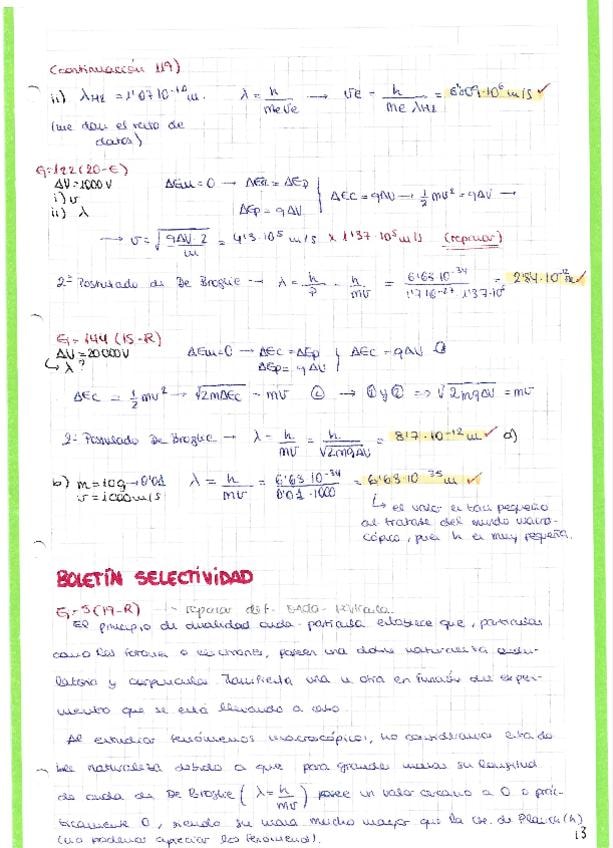 (continuación 119)
ii) λH2 = 1'07·10⁻¹⁰ m. λ = h/(me ve) → ve = h/(me λH2) = 6'09·10⁶ m/s ✓
(me dan el resto de
datos)
E-122 (20-E)
ΔV = 1000 V ΔEm = 0 → ΔEc = ΔEp
i) v ΔEc = qΔV → ½ mv² = qΔV →
ii) λ ΔEp = qΔV
→ v = √(qΔV·2/m) = 4'3·10⁵ m/s × 1'37·10⁵ m/s (repasar)
2º Postulado de De Broglie → λ = h/p = h/mv = 6'63·10⁻³⁴/1'7·10⁻²⁷·1'37·10⁵ = 2'84·10⁻¹² m ✓
E-144 (15-R)
ΔV = 20000 V ΔEm = 0 → ΔEc = ΔEp ΔEc = qΔV ①
↳ λ? ΔEp = qΔV
ΔEc = ½ mv² → √2mΔEc = mv ② → ① y ② => √2mqΔV = mv
2º Postulado De Broglie → λ = h/mv = h/√2mqΔV = 8'17·10⁻¹² m ✓ a)
b) m = 10g → 0'01 λ = h/mv = 6'63·10⁻³⁴/0'01·1000 = 6'63·10⁻³⁵ m ✓
v = 1000 m/s
↳ es valor es tan pequeño
al tratarse del mundo macros-
cópico, pues h es muy pequeña.
BOLETÍN SELECTIVIDAD
E-3 (19-R) → repasar def. onda-partícula.
El principio de dualidad onda-partícula establece que, partículas
como los fotones o electrones, poseen una doble naturaleza ondu-
latoria y corpuscular. Manifiesta una u otra en función del exper-
imento que se está llevando a cabo.
Al estudiar fenómenos macroscópicos, no consideramos esta do-
ble naturaleza debido a que para grandes masas su longitud
de onda de De Broglie (λ = h/mv) posee un valor cercano a 0 o prác-
ticamente 0, siendo su masa mucho mayor que la cte. de Planck (h)
(no podemos apreciar los fenómenos).
13